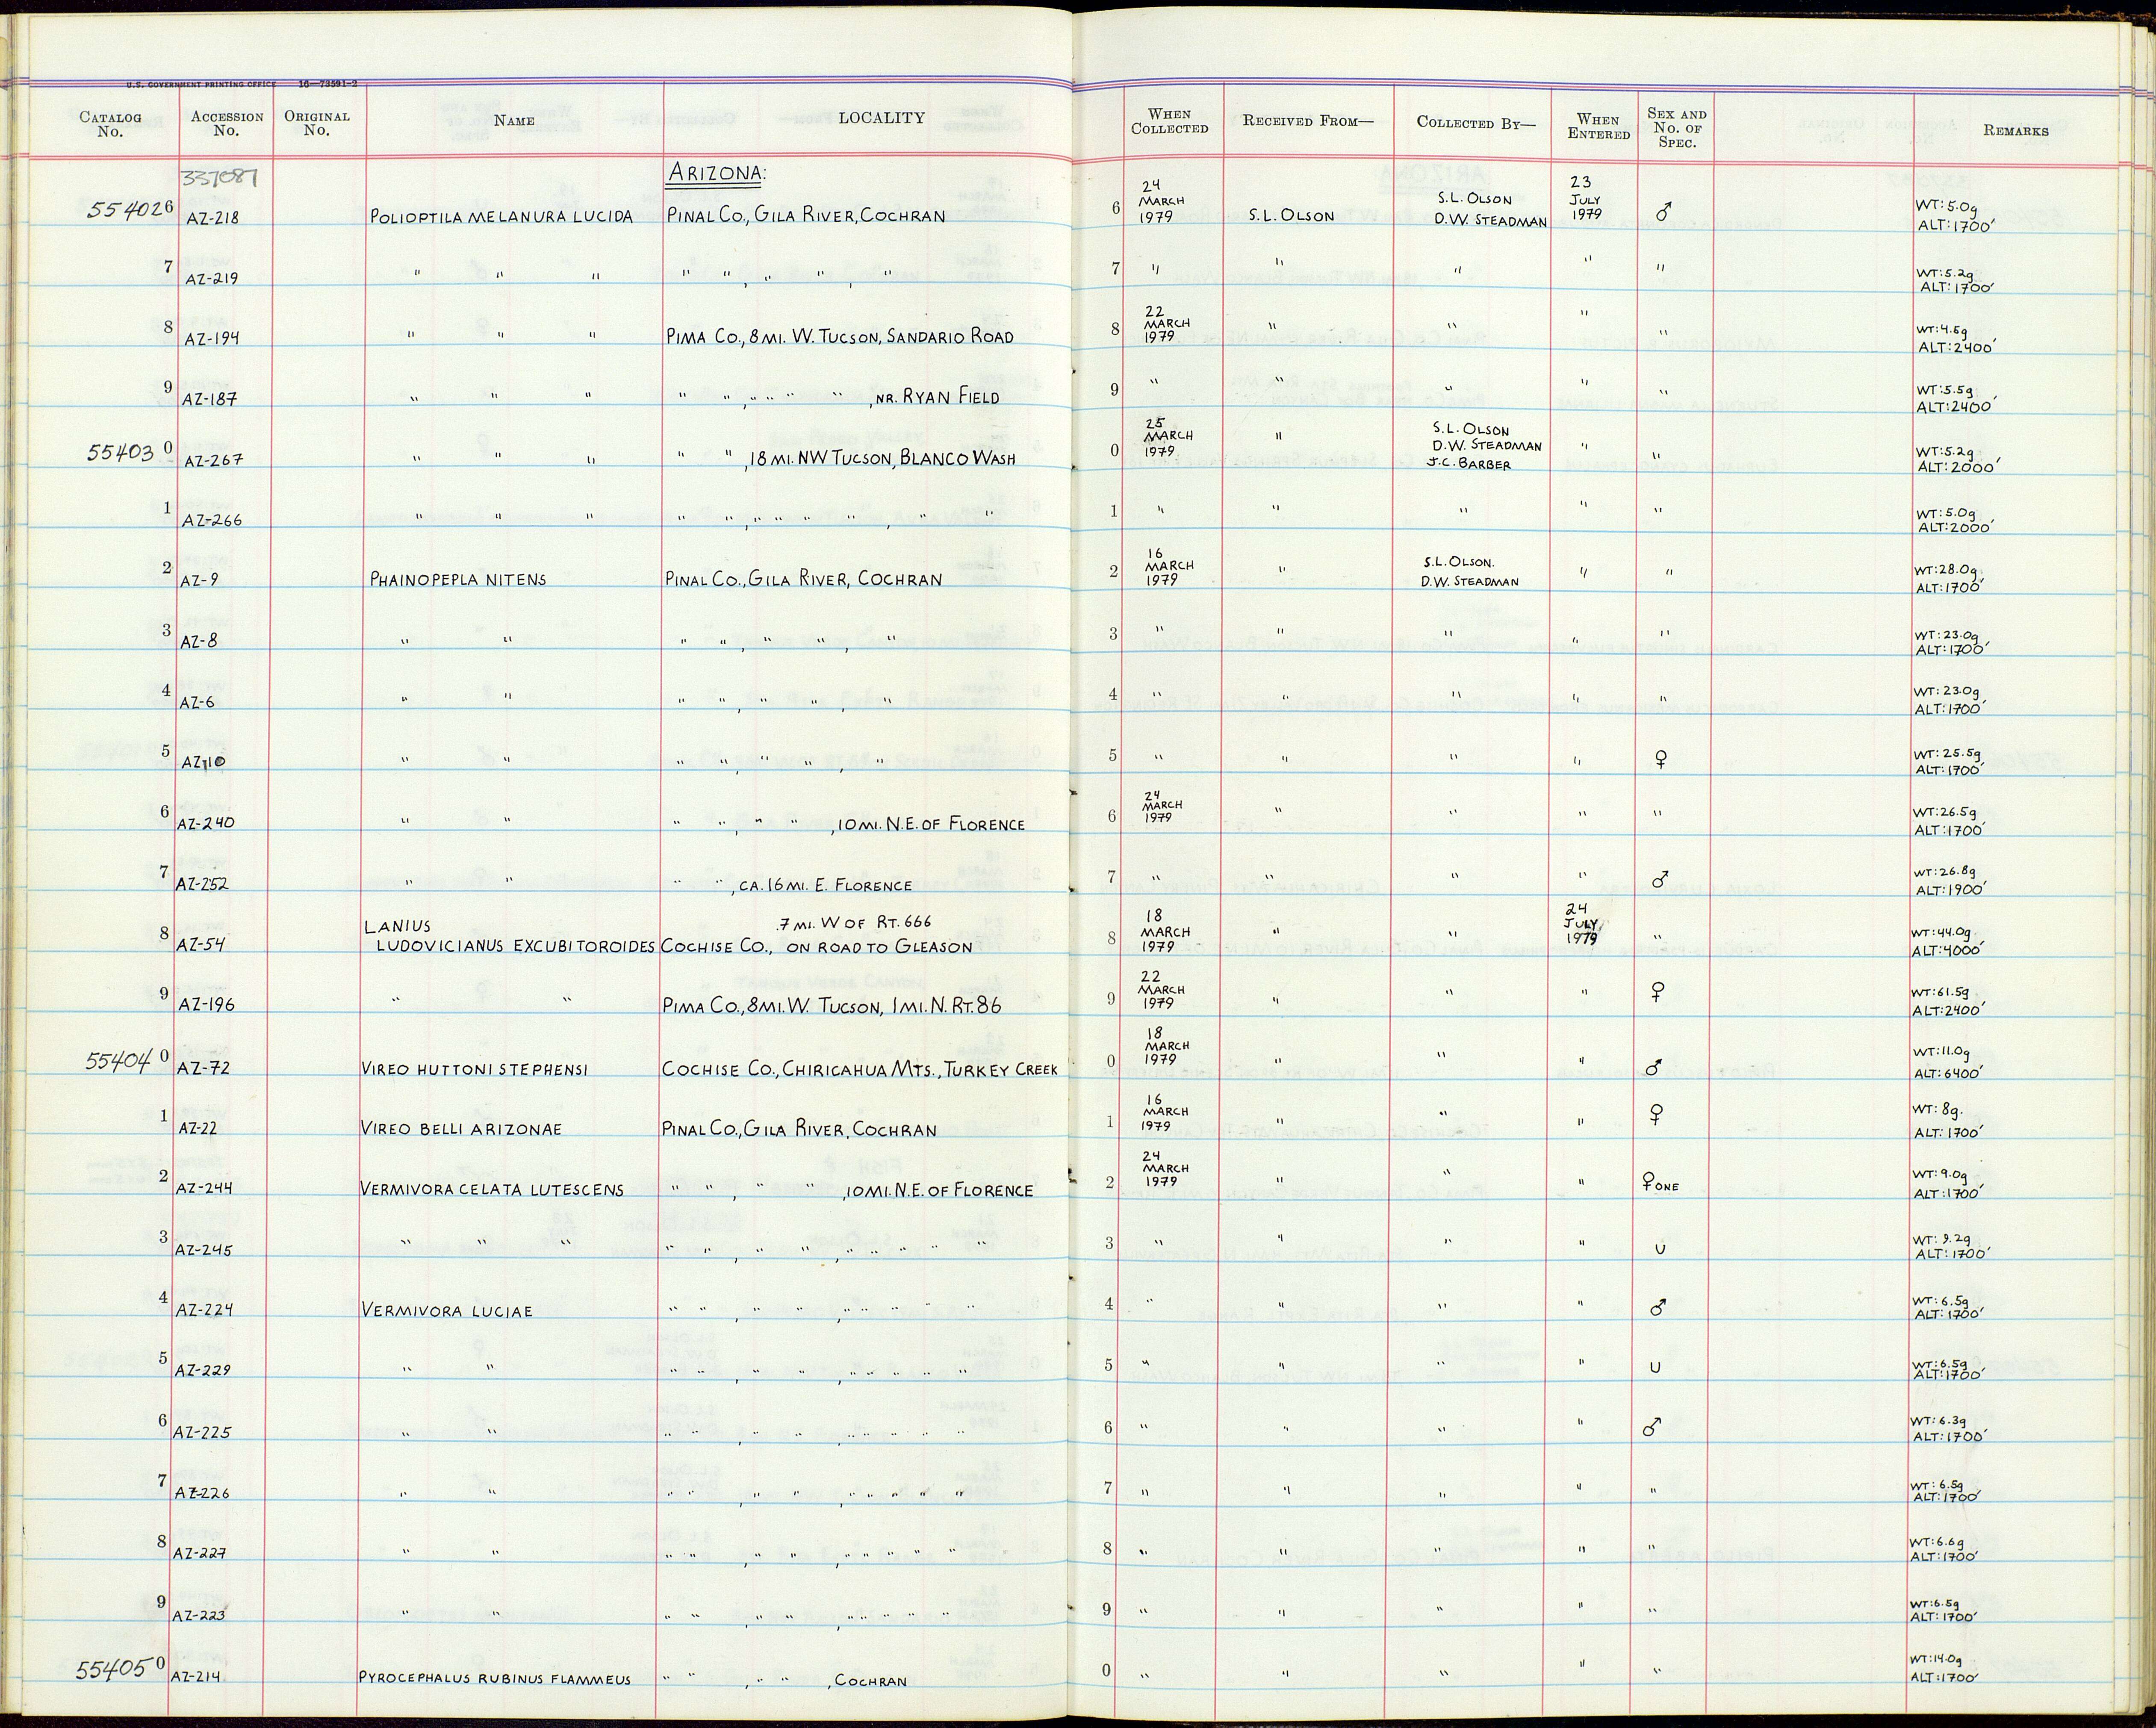 U.S. GOVERNMENT PRINTING OFFICE 16—73591-2
CATALOG No. ACCESSION No. ORIGINAL No. NAME LOCALITY WHEN COLLECTED RECEIVED FROM— COLLECTED BY— WHEN ENTERED SEX AND No. OF SPEC. REMARKS
337087 ARIZONA:
554026 AZ-218 POLIOPTILA MELANURA LUCIDA PINAL CO., GILA RIVER, COCHRAN 6 24 MARCH 1979 S.L. OLSON S.L. OLSON D.W. STEADMAN 23 JULY 1979 ♂ WT: 5.0g ALT: 1700'
7 AZ-219 " " " " " , " " , " 7 " " " " " WT: 5.2g ALT: 1700'
8 AZ-194 " " " PIMA CO., 8 MI. W. TUCSON, SANDARIO ROAD 8 22 MARCH 1979 " " " " WT: 4.5g ALT: 2400'
9 AZ-187 " " " " " , " " " " , NR. RYAN FIELD 9 " " " " " WT: 5.5g ALT: 2400'
554030 AZ-267 " " " " " , 18 MI. NW TUCSON, BLANCO WASH 0 25 MARCH 1979 " S.L. OLSON D.W. STEADMAN J.C. BARBER " " WT: 5.2g ALT: 2000'
1 AZ-266 " " " " " , " " " " , " " 1 " " " " " WT: 5.0g ALT: 2000'
2 AZ-9 PHAINOPEPLA NITENS PINAL CO., GILA RIVER, COCHRAN 2 16 MARCH 1979 " S.L. OLSON. D.W. STEADMAN " " WT: 28.0g ALT: 1700'
3 AZ-8 " " " " , " " , " 3 " " " " " WT: 23.0g ALT: 1700'
4 AZ-6 " " " " , " " , " 4 " " " " " WT: 23.0g ALT: 1700'
5 AZ-10 " " " " , " " , " 5 " " " " ♀ WT: 25.5g ALT: 1700'
6 AZ-240 " " " " , " " , 10 MI. N.E. OF FLORENCE 6 24 MARCH 1979 " " " " WT: 26.5g ALT: 1700'
7 AZ-252 " " " " , CA. 16 MI. E. FLORENCE 7 " " " " ♂ WT: 26.8g ALT: 1900'
8 AZ-54 LANIUS LUDOVICIANUS EXCUBITOROIDES COCHISE CO., .7 MI. W OF RT. 666 ON ROAD TO GLEASON 8 18 MARCH 1979 " " 24 JULY 1979 " WT: 44.0g ALT: 4000'
9 AZ-196 " " PIMA CO., 8 MI. W. TUCSON, 1 MI. N. RT. 86 9 22 MARCH 1979 " " " ♀ WT: 61.5g ALT: 2400'
554040 AZ-72 VIREO HUTTONI STEPHENSI COCHISE CO., CHIRICAHUA MTS., TURKEY CREEK 0 18 MARCH 1979 " " " ♂ WT: 11.0g ALT: 6400'
1 AZ-22 VIREO BELLI ARIZONAE PINAL CO., GILA RIVER, COCHRAN 1 16 MARCH 1979 " " " ♀ WT: 8g. ALT: 1700'
2 AZ-244 VERMIVORA CELATA LUTESCENS " " , " " , 10 MI. N.E. OF FLORENCE 2 24 MARCH 1979 " " " ♀ ONE WT: 9.0g ALT: 1700'
3 AZ-245 " " " " " , " " , " " " " " 3 " " " " U WT: 9.2g ALT: 1700'
4 AZ-224 VERMIVORA LUCIAE " " , " " , " " " " " 4 " " " " ♂ WT: 6.5g ALT: 1700'
5 AZ-229 " " " " , " " , " " " " " 5 " " " " U WT: 6.5g ALT: 1700'
6 AZ-225 " " " " , " " , " " " " " 6 " " " " ♂ WT: 6.3g ALT: 1700'
7 AZ-226 " " " " , " " , " " " " " 7 " " " " " WT: 6.5g ALT: 1700'
8 AZ-227 " " " " , " " , " " " " " 8 " " " " " WT: 6.6g ALT: 1700'
9 AZ-223 " " " " , " " , " " " " " 9 " " " " " WT: 6.5g ALT: 1700'
554050 AZ-214 PYROCEPHALUS RUBINUS FLAMMEUS " " , " " , COCHRAN 0 " " " " " WT: 14.0g ALT: 1700'